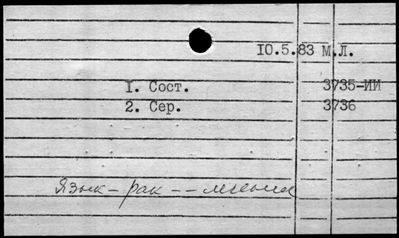 10.5.83 М.Л.
1. Сост. 3735-ИИ
2. Сер. 3736
Язык – рак – – лечение